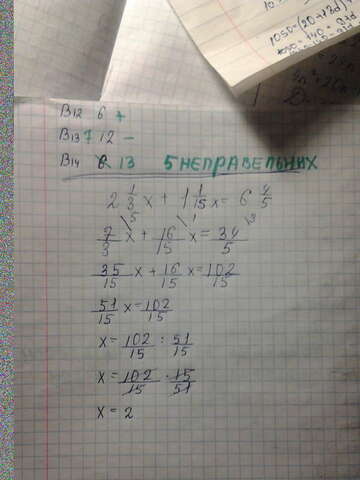 1050-(20+13d)
B12 6 +
B13 7 12 -
B14 13 5 НЕПРАВЕЛЬНИХ
2 1/3 x + 1 1/15 x = 6 4/5
7/3 x + 16/15 x = 34/5
35/15 x + 16/15 x = 102/15
51/15 x = 102/15
x = 102/15 : 51/15
x = 102/15 · 15/51
x = 2